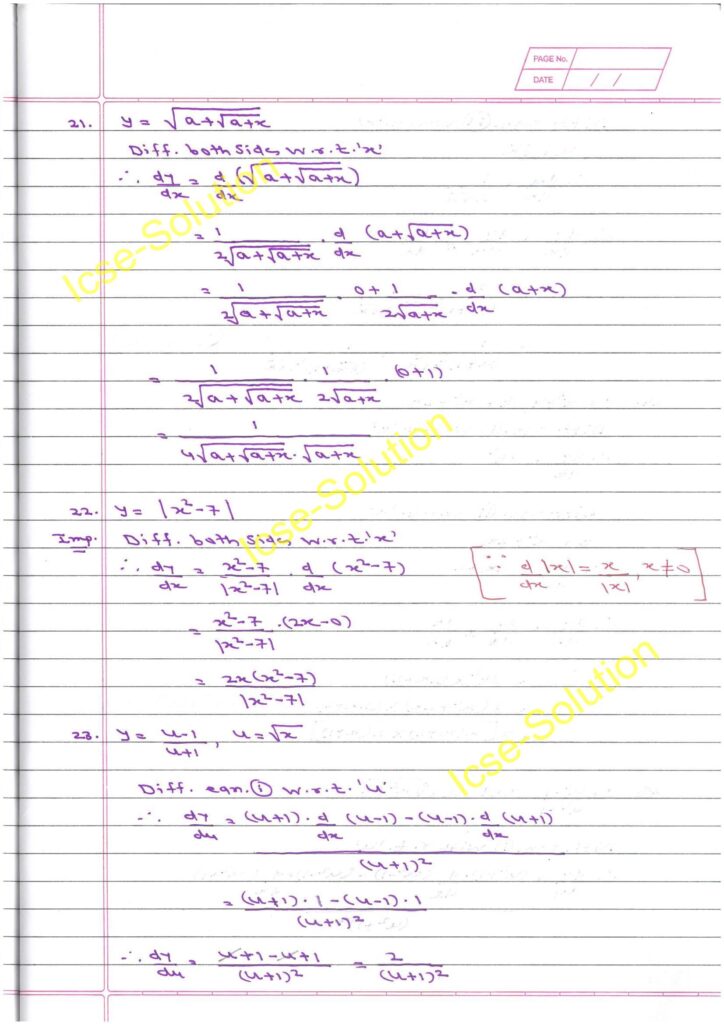 PAGE No.
DATE / /
21. y = √(a+√(a+x))
Diff. both side, w.r.t. 'x'
∴ dy/dx = d/dx (√(a+√(a+x)))
= 1/(2√(a+√(a+x))) · d/dx (a+√(a+x))
= 1/(2√(a+√(a+x))) · 0+1/(2√(a+x)) · d/dx (a+x)
= 1/(2√(a+√(a+x))) · 1/(2√(a+x)) · (0+1)
= 1/(4√(a+√(a+x)) · √(a+x))
22. y = |x²-7|
Imp. Diff. both side, w.r.t. 'x'
∴ dy/dx = (x²-7)/|x²-7| · d/dx (x²-7) [∵ d/dx |x| = x/|x|, x≠0]
= (x²-7)/|x²-7| · (2x-0)
= 2x(x²-7)/|x²-7|
23. y = (u-1)/(u+1), u = √x
Diff. eqn. ① w.r.t. 'u'
∴ dy/du = ((u+1) · d/dx (u-1) - (u-1) · d/dx (u+1))/(u+1)²
= ((u+1) · 1 - (u-1) · 1)/(u+1)²
∴ dy/du = (u+1-u+1)/(u+1)² = 2/(u+1)²
Icse-Solution
Icse-Solution
Icse-Solution